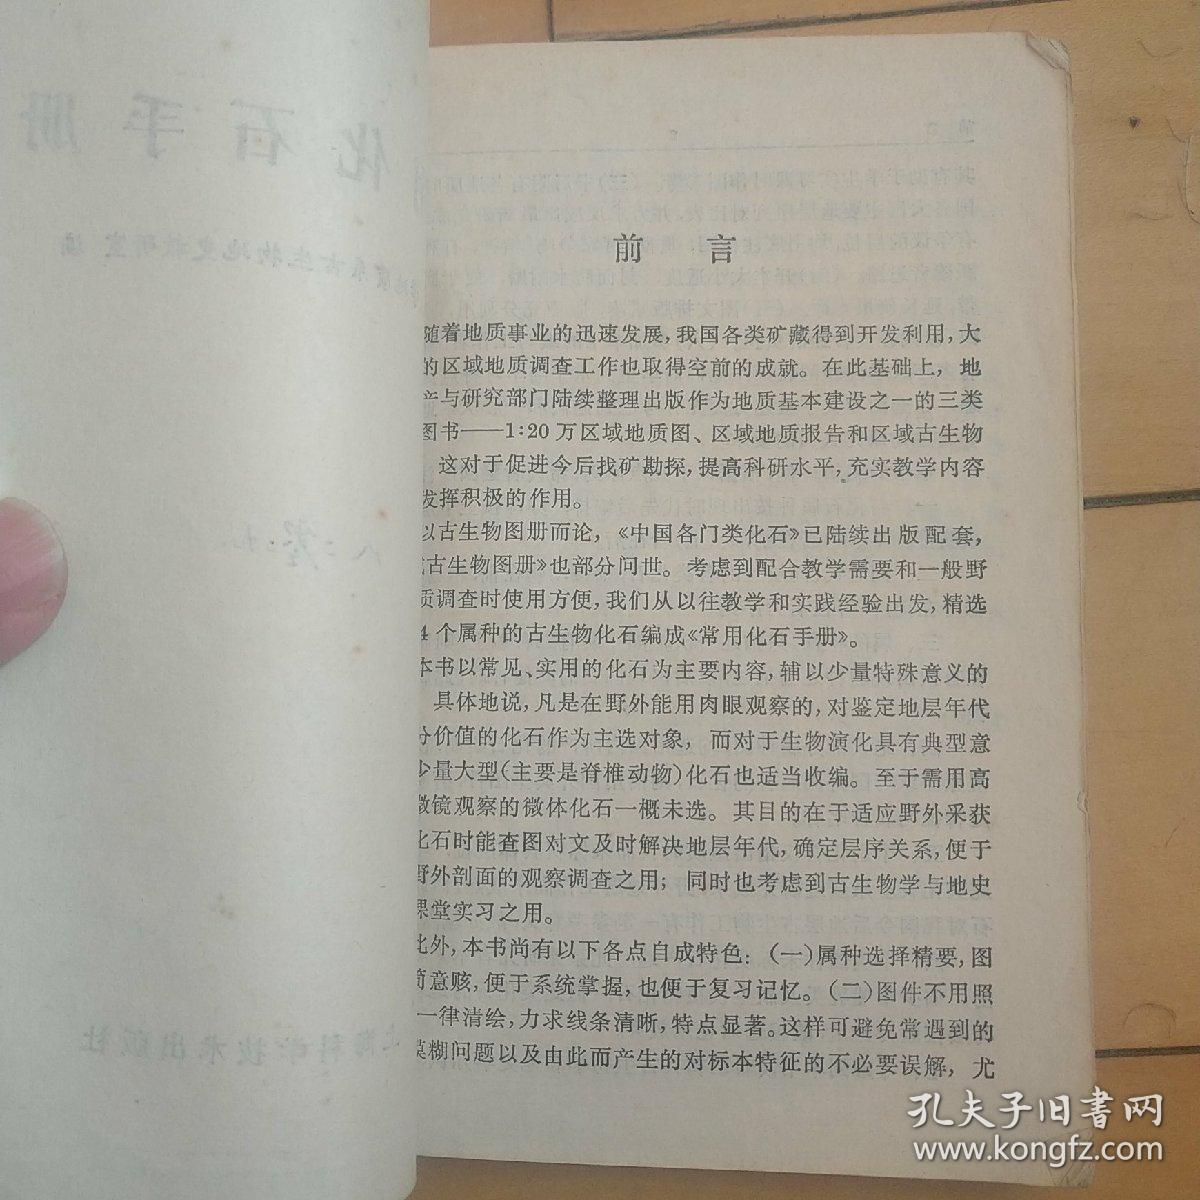 化石手册
前言
随着地质事业的迅速发展，我国各类矿藏得到开发利用，大
的区域地质调查工作也取得空前的成就。在此基础上，地
与研究部门陆续整理出版作为地质基本建设之一的三类
图书——1:20万区域地质图、区域地质报告和区域古生物
这对于促进今后找矿勘探，提高科研水平，充实教学内容
发挥积极的作用。
以古生物图册而论，《中国各门类化石》已陆续出版配套，
古生物图册》也部分问世。考虑到配合教学需要和一般野
质调查时使用方便，我们从以往教学和实践经验出发，精选
4个属种的古生物化石编成《常用化石手册》。
本书以常见、实用的化石为主要内容，辅以少量特殊意义的
具体地说，凡是在野外能用肉眼观察的，对鉴定地层年代
分价值的化石作为主选对象，而对于生物演化具有典型意
少量大型(主要是脊椎动物)化石也适当收编。至于需用高
微镜观察的微体化石一概未选。其目的在于适应野外采获
化石时能查图对文及时解决地层年代，确定层序关系，便于
野外剖面的观察调查之用；同时也考虑到古生物学与地史
课堂实习之用。
此外，本书尚有以下各点自成特色：(一)属种选择精要，图
简意赅，便于系统掌握，也便于复习记忆。(二)图件不用照
一律清绘，力求线条清晰，特点显著。这样可避免常遇到的
模糊问题以及由此而产生的对标本特征的不必要误解，尤
孔夫子旧书网
www.kongfz.com